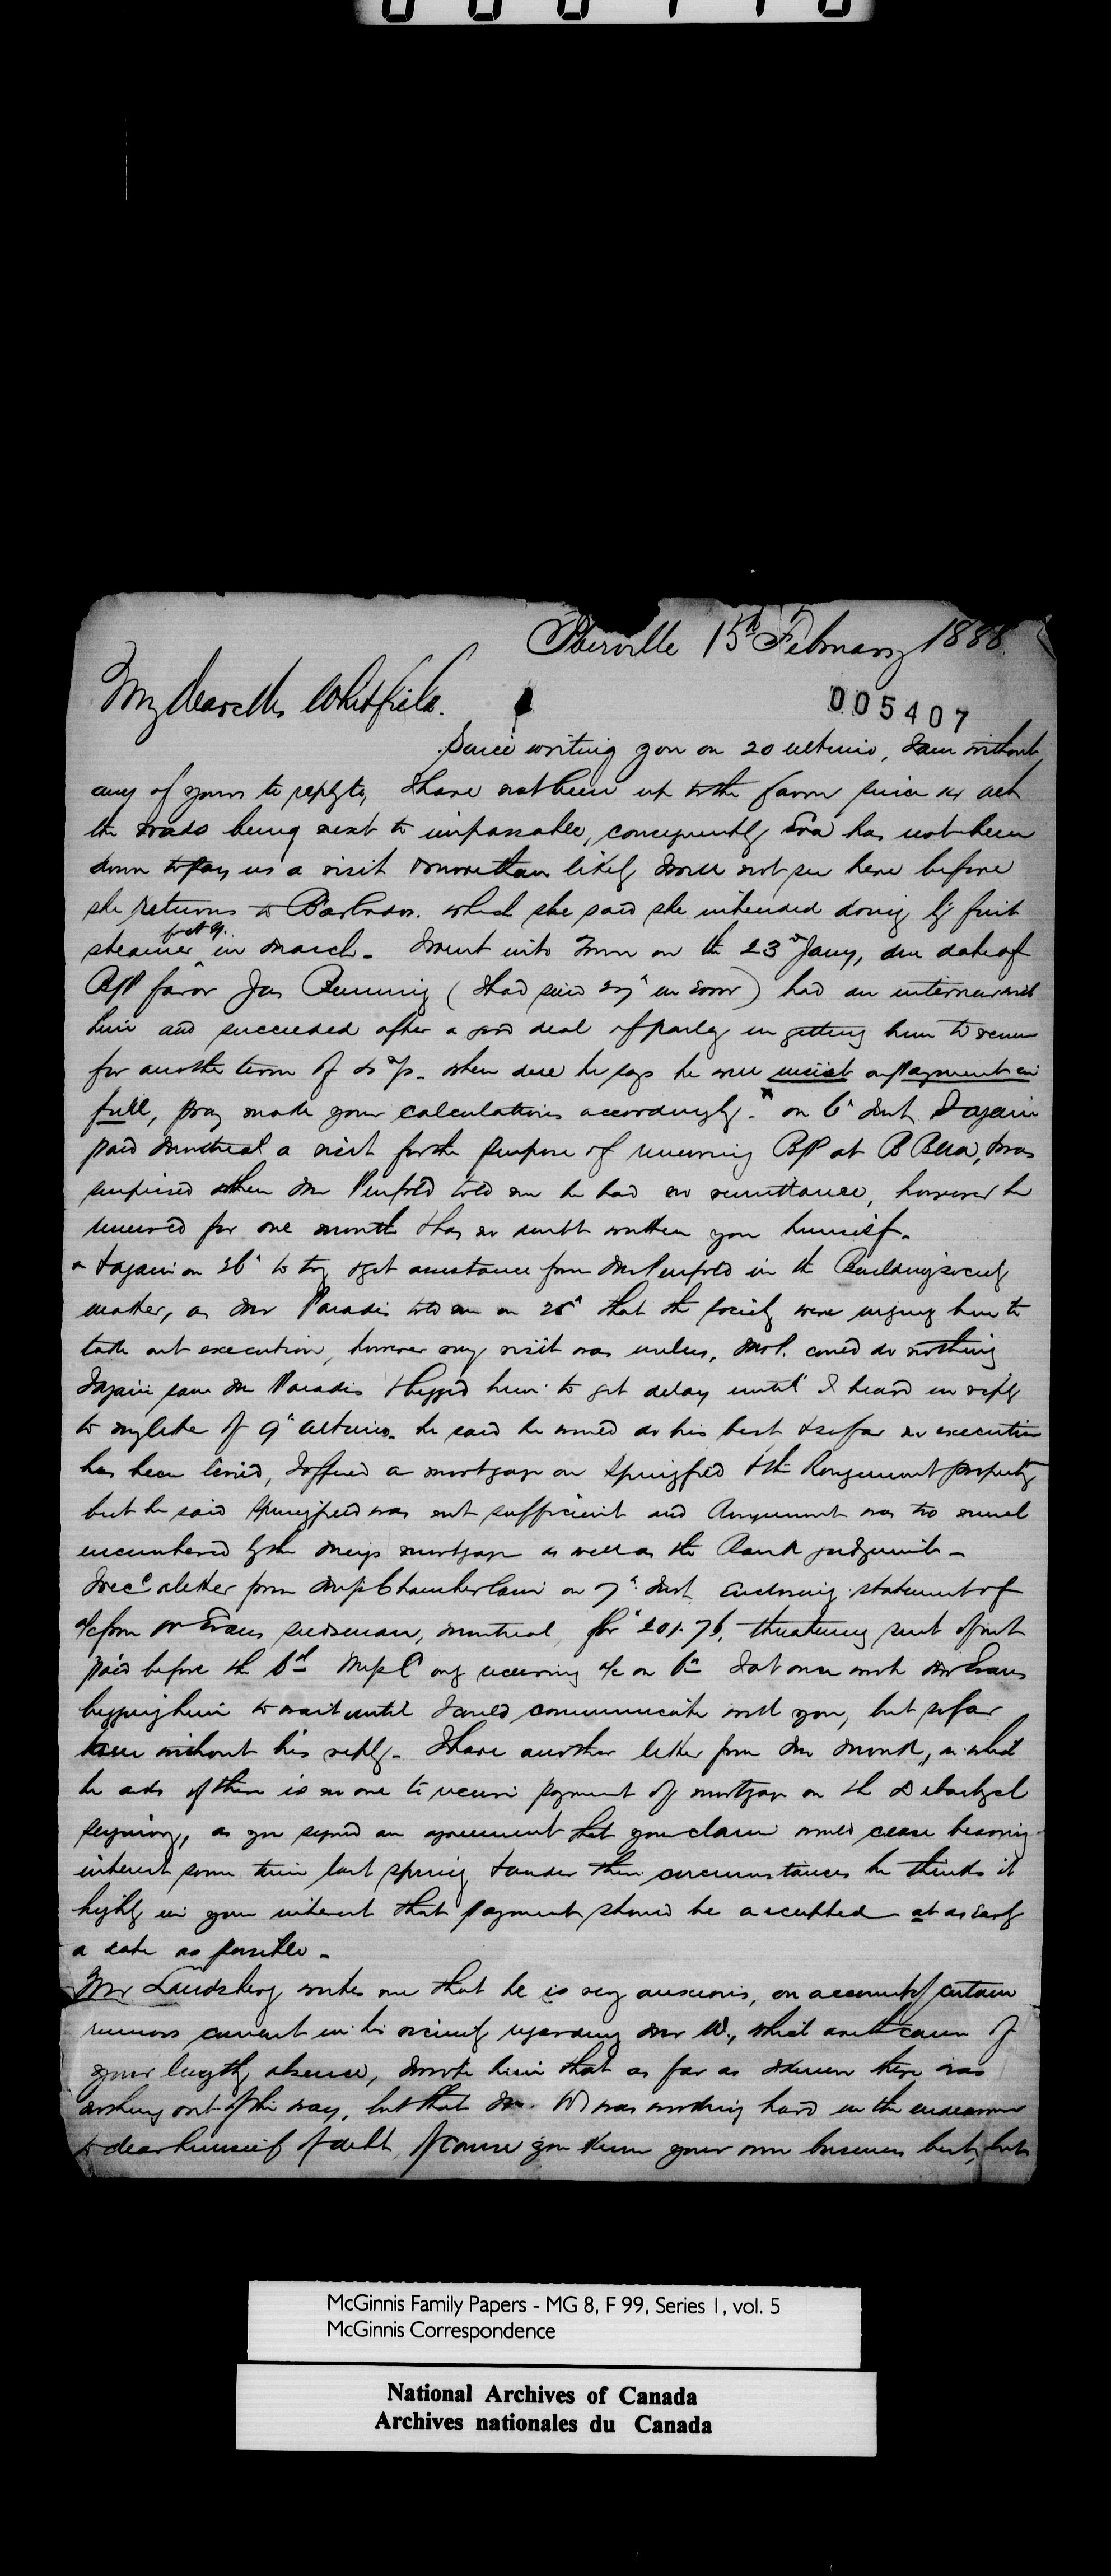 Iberville 15th February 1888
005407
My dear Mr Whitfield.
Since writing you on 20 ultimo, I am without
any of yours to reply to, I have not been up to the farm since as yet
the roads being next to impassable, consequently Eva has not been
down to pay us a visit & more than likely I will not see her before
she returns to Barbados. which she said she intended doing by first
steamer in March - I went into Town on the 23d Jany, due date of
B/P favor Jas Benning (I had said 27th in error) had an interview with
him and succeeded after a good deal of parley in getting him to renew
for another term of when due he says he will insist on payment in
full, pray make your calculations accordingly. x on 6th Inst I again
paid Montreal a visit for the purpose of renewing B/P at B BNA, & was
surprised when Mr Penfold told me he had no remittance, however he
renewed for one month & has no doubt written you himself.
x & again on 26th to try & get assistance from Mr Penfold in the Building society
matter, as Mr Paradis told me on 25th that the society were urging him to
take out execution, however my visit was useless, Mr P. could do nothing
I again saw Mr Paradis & begged him to get delay until I heard in reply
to my letter of 9th ultimo. he said he would do his best & so far no execution
has been levied, I offered a mortgage on Springfield & the Rougemont property
but he said Springfield was not sufficient and Rougemont was too much
encumbered by the mortgage as well as the Bank judgments -
I recd a letter from Chamberlain on 7th Inst enclosing statement of
a/c from Mr Evans seedsman, Montreal, for $201.76, threatening suit if not
paid before the 6th only receiving a/c on 6th I at once wrote Mr Evans
begging him to wait until I could communicate with you, but so far
I am without his reply. I have another letter from Mr Monk, in which
he asks if there is no one to receive payment of mortgage on the
seigniory, as you signed an agreement that your claim would cease bearing
interest some time last spring & under these circumstances he thinks it
highly in your interest that payment should be accepted at as early
a date as possible -
Mr Landsberg writes me that he is very anxious, on account of certain
rumors current in his vicinity regarding Mr W., which are the cause of
your lengthy absence, I wrote him that as far as I knew there was
nothing out of the way, but that Mr. W was working hard in the endeavour
to clear himself of debt, of course you know your own business best, but
McGinnis Family Papers - MG 8, F 99, Series 1, vol. 5
McGinnis Correspondence
National Archives of Canada
Archives nationales du Canada